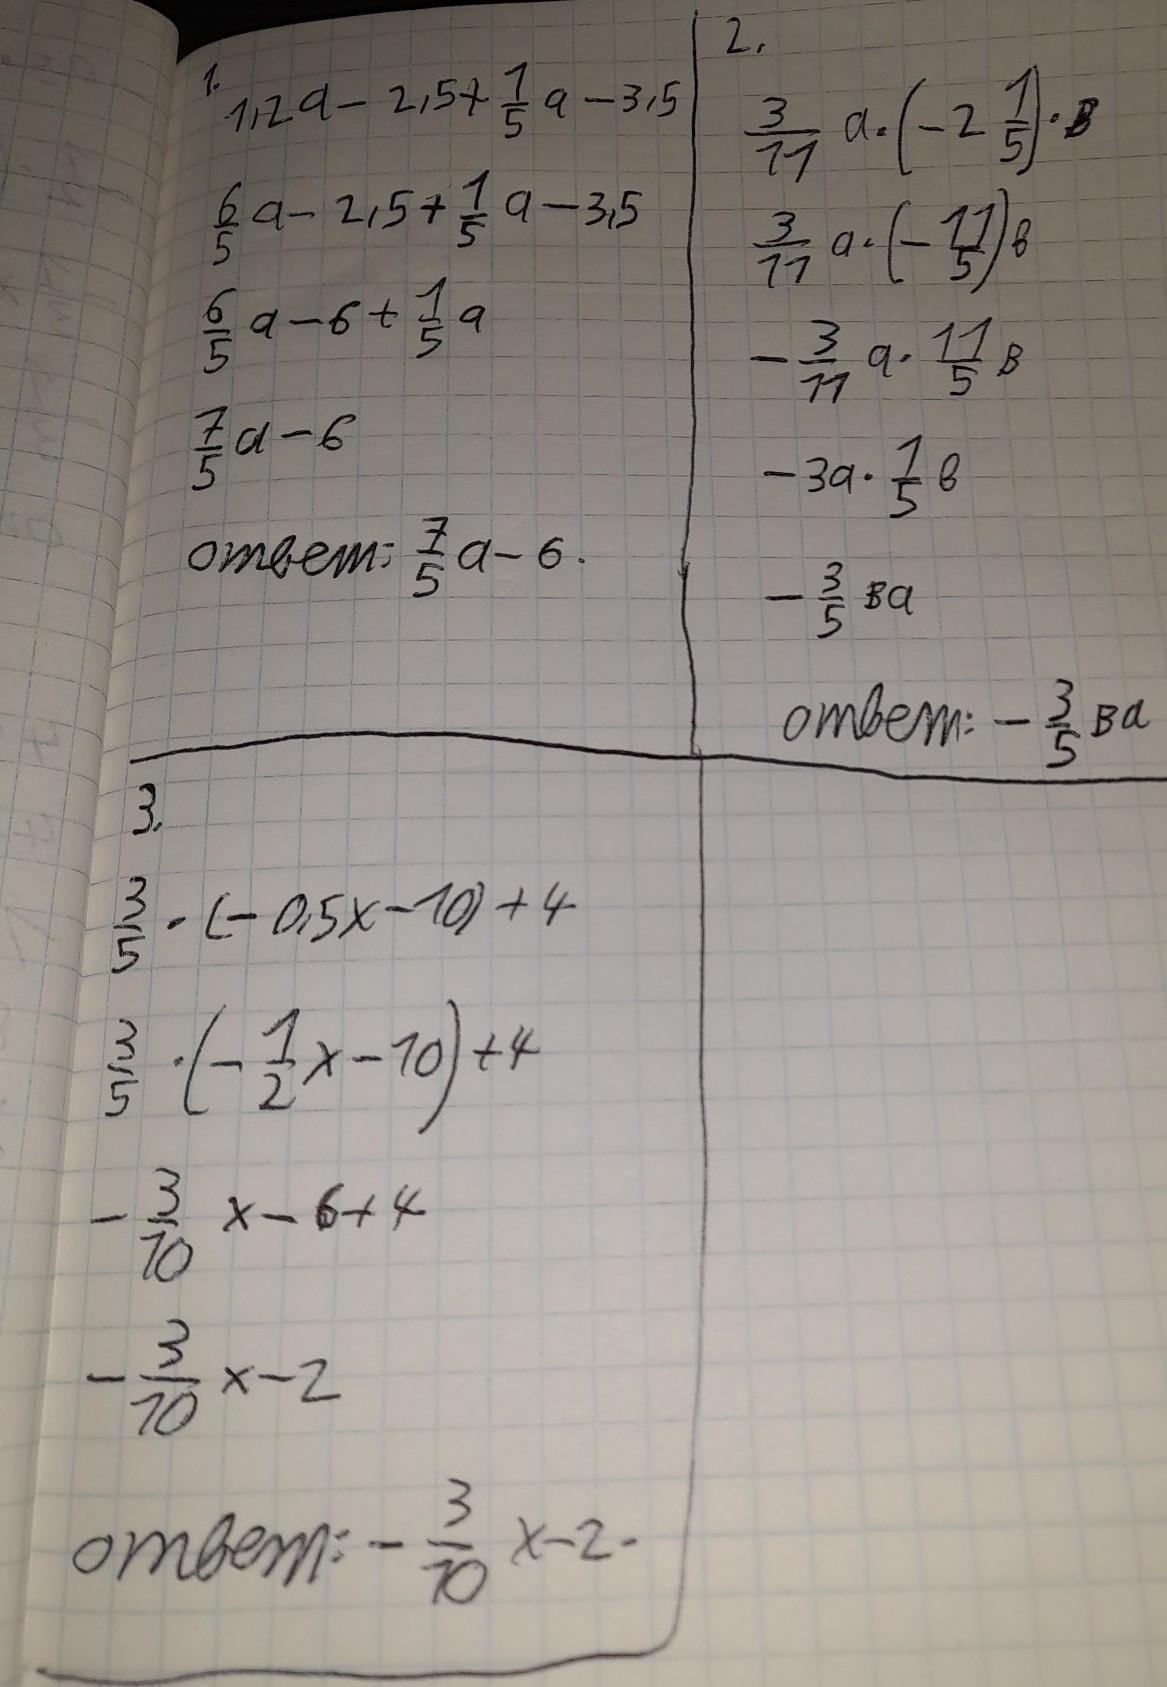 1.
1,2a - 2,5 + 1/5 a - 3,5
6/5 a - 2,5 + 1/5 a - 3,5
6/5 a - 6 + 1/5 a
7/5 a - 6
ответ: 7/5 a - 6.
2.
3/11 a · (-2 1/5) · в
3/11 a · (-11/5) в
- 3/11 a · 11/5 в
- 3a · 1/5 в
- 3/5 вa
ответ: - 3/5 вa
3.
3/5 · (- 0,5x - 10) + 4
3/5 · (- 1/2 x - 10) + 4
- 3/10 x - 6 + 4
- 3/10 x - 2
ответ: - 3/10 x - 2.